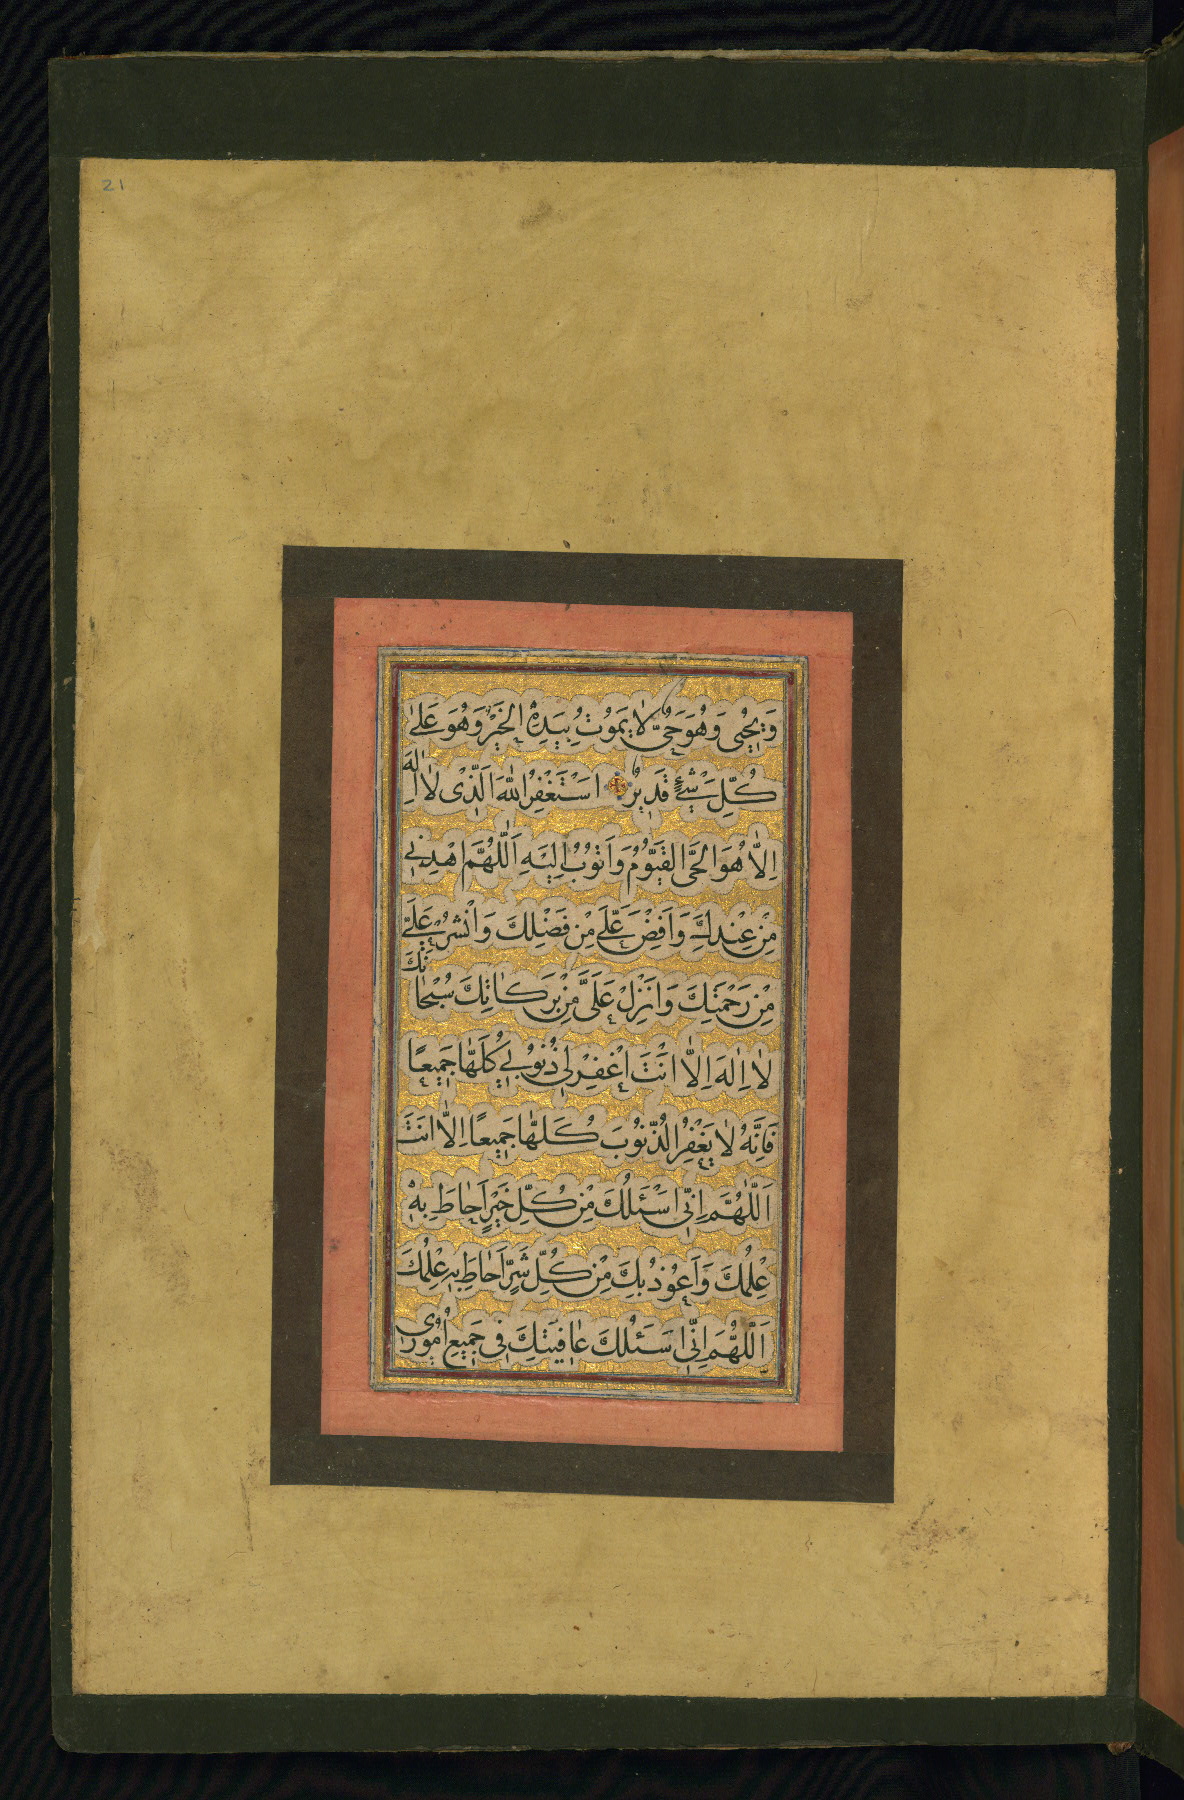 21
وَيُحْيِي وَهُوَ حَيٌّ لَا يَمُوتُ بِيَدِهِ الْخَيْرُ وَهُوَ عَلٰى
كُلِّ شَيْءٍ قَدِيرٌ اَسْتَغْفِرُ اللهَ الَّذِي لٰا اِلٰهَ
اِلّٰا هُوَ الْحَيَّ الْقَيُّومُ وَاَتُوبُ اِلَيْهِ اَللّٰهُمَّ اهْدِنِي
مِنْ عِنْدِكَ وَاَفِضْ عَلَيَّ مِنْ فَضْلِكَ وَانْشُرْ عَلَيَّ
مِنْ رَحْمَتِكَ وَاَنْزِلْ عَلَيَّ مِنْ بَرَكٰاتِكَ سُبْحٰانَكَ
لٰا اِلٰهَ اِلّٰا اَنْتَ اغْفِرْ لِي ذُنُوبِي كُلَّهٰا جَمِيعًا
فَاِنَّهُ لٰا يَغْفِرُ الذُّنُوبَ كُلَّهٰا جَمِيعًا اِلّٰا اَنْتَ
اَللّٰهُمَّ اِنِّي اَسْئَلُكَ مِنْ كُلِّ خَيْرٍ اَحٰاطَ بِهِ
عِلْمُكَ وَاَعُوذُ بِكَ مِنْ كُلِّ شَرٍّ اَحٰاطَ بِهِ عِلْمُكَ
اَللّٰهُمَّ اِنِّي اَسْئَلُكَ عٰافِيَتَكَ فِي جَمِيعِ اُمُورِي